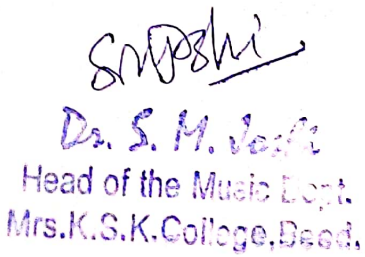 SMJoshi
Dr. S. M. Joshi
Head of the Music Dept.
Mrs.K.S.K.College,Beed.